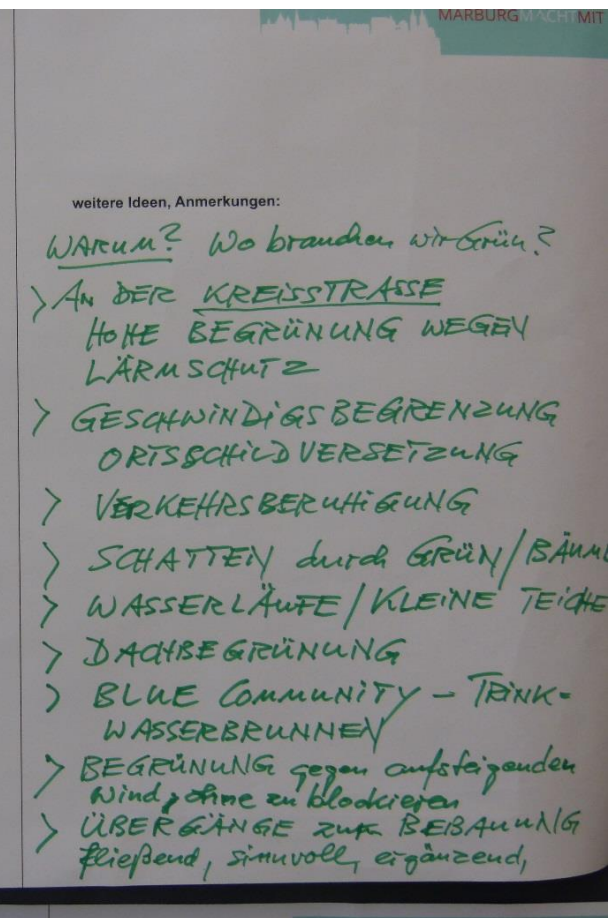 MARBURGMACHTMIT
weitere Ideen, Anmerkungen:
WARUM? Wo brauchen wir Grün?
> AN DER KREISSTRASSE
HOHE BEGRÜNUNG WEGEN
LÄRMSCHUTZ
> GESCHWINDIGSBEGRENZUNG
ORTSSCHILDVERSETZUNG
> VERKEHRSBERUHIGUNG
> SCHATTEN durch GRÜN/BÄUME
> WASSERLÄUFE/KLEINE TEICHE
> DACHBEGRÜNUNG
> BLUE COMMUNITY – TRINK-
WASSERBRUNNEN
> BEGRÜNUNG gegen aufsteigenden
Wind, ohne zu blockieren
> ÜBERGÄNGE zur BEBAUUNG
fließend, sinnvoll, ergänzend,